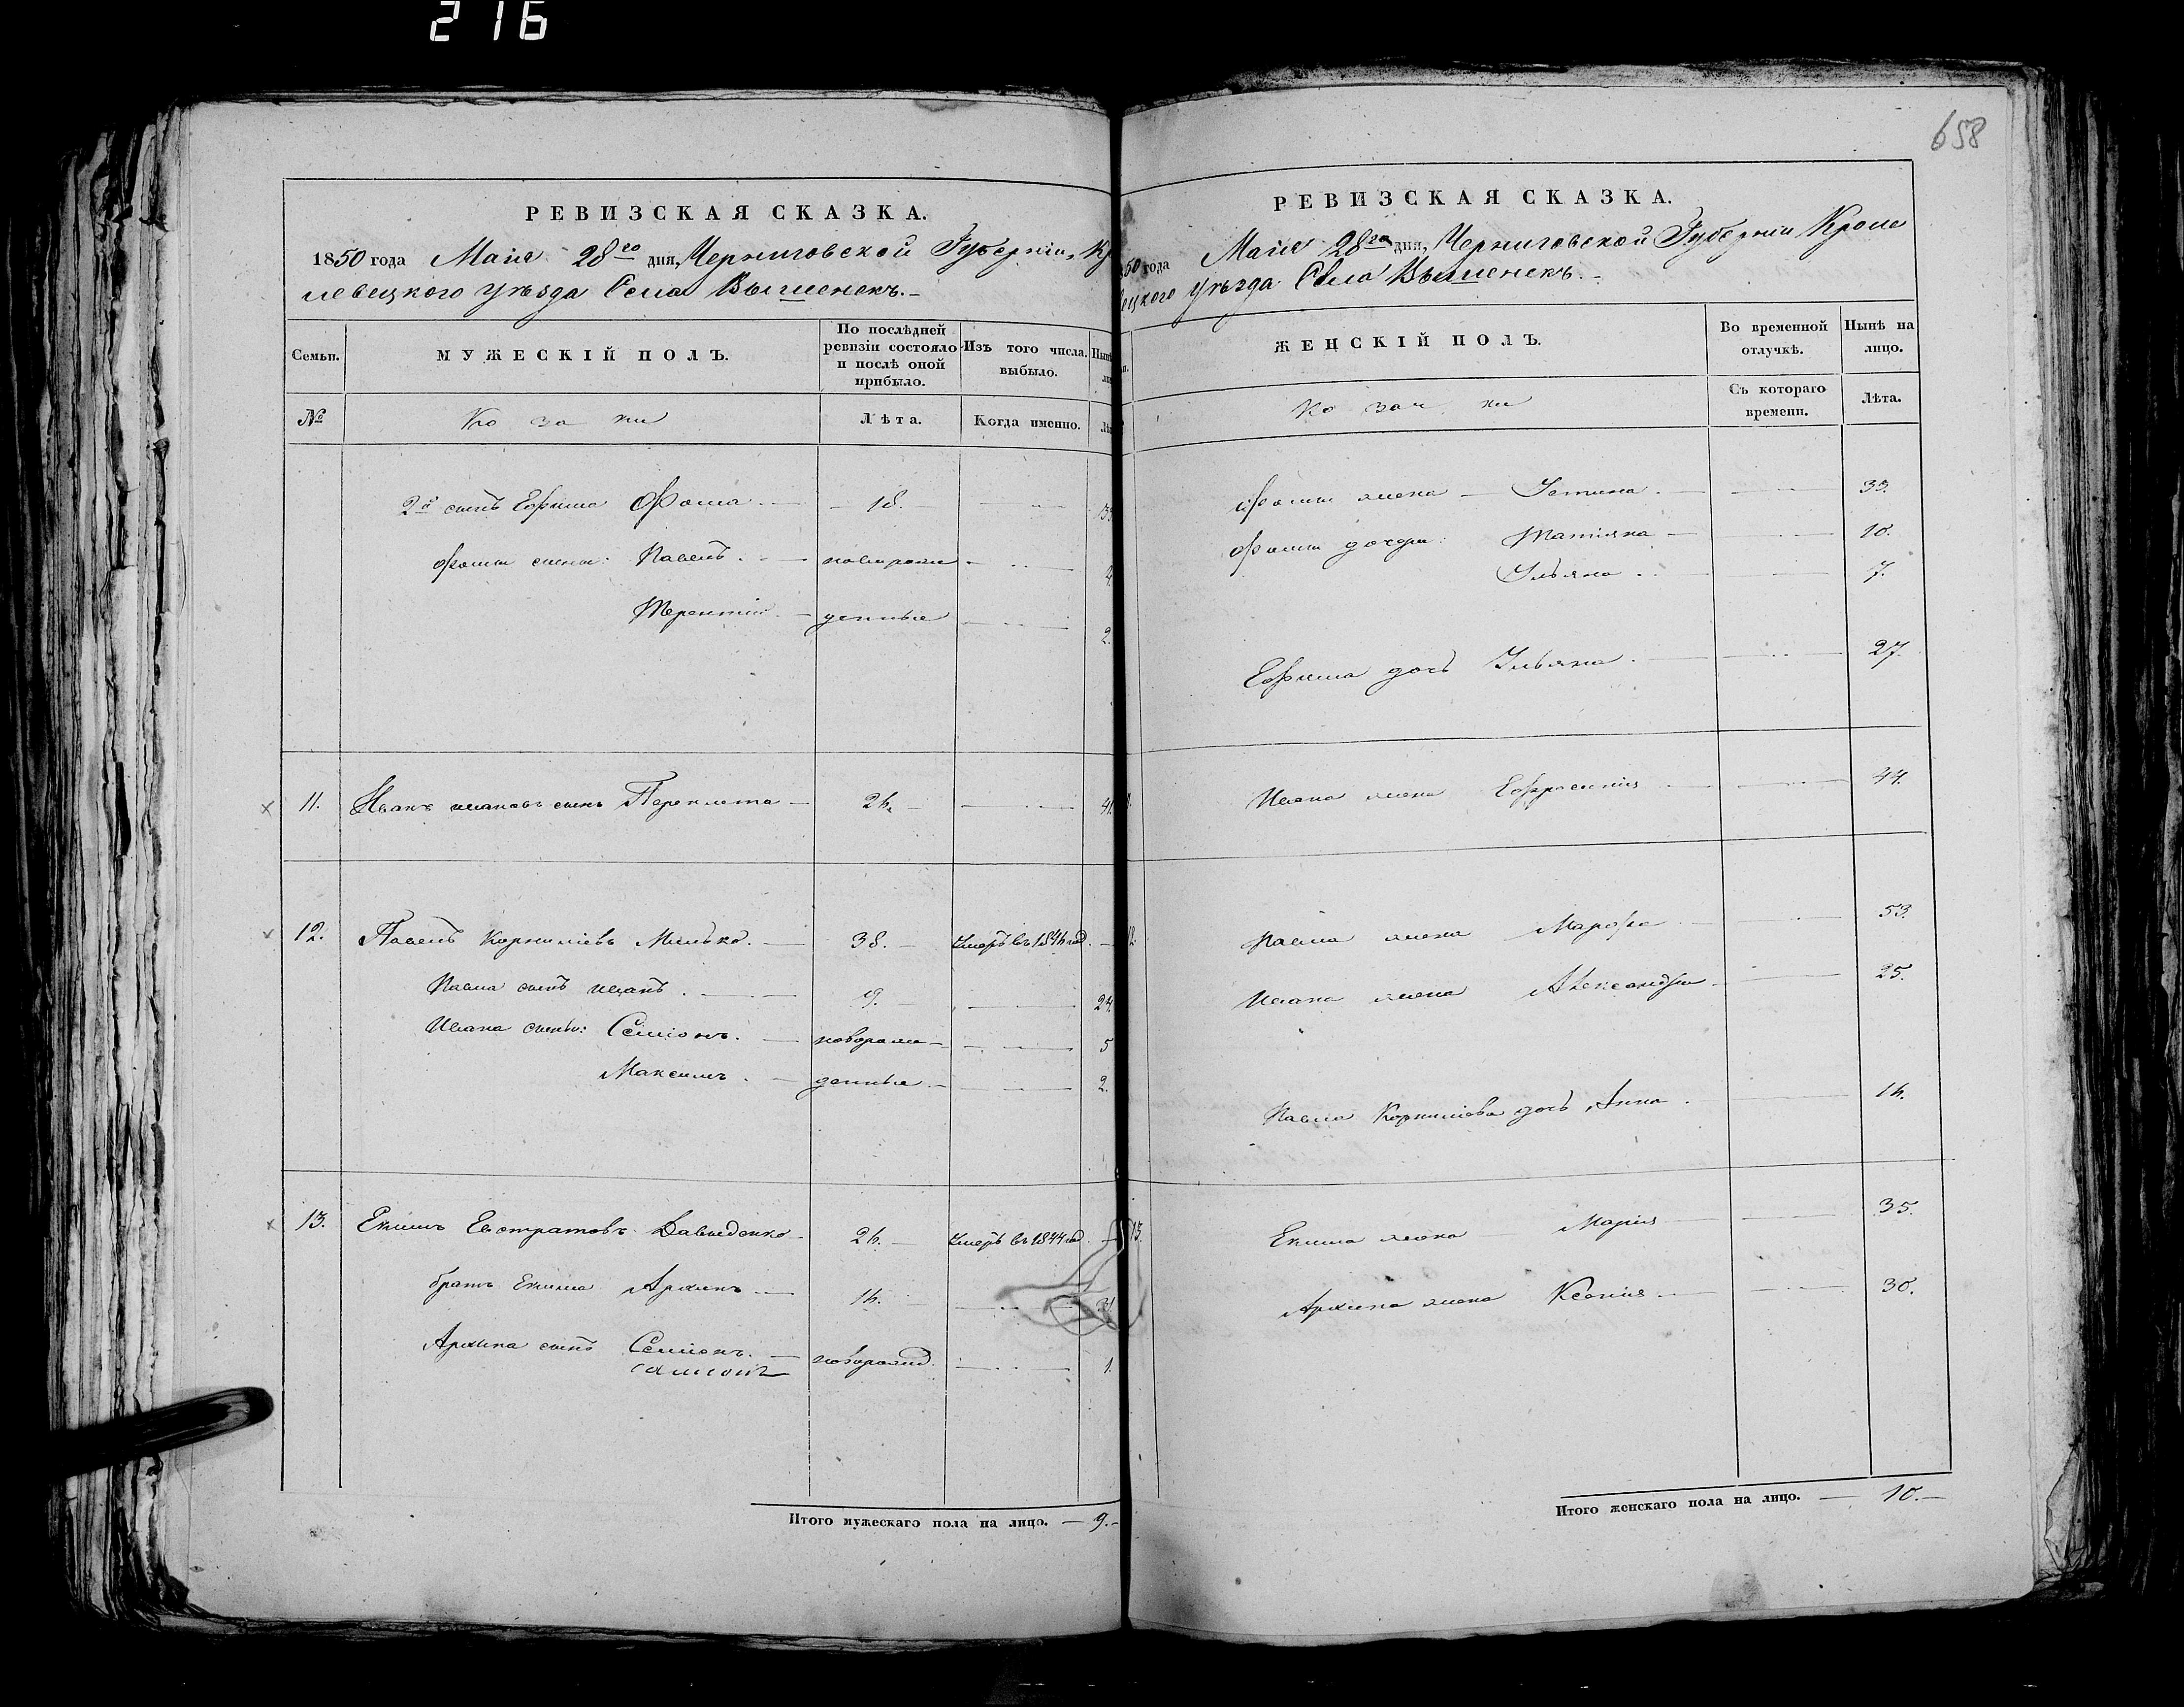 216
658
РЕВИЗСКАЯ СКАЗКА.
1850 года Маія 28го дня, Черниговской Губерніи, Кр
левецкого уѣзда Села Вышенекъ.-
Семьи.
МУЖЕСКІЙ ПОЛЪ.
По послѣдней ревизіи состояло и послѣ оной прибыло.
Изъ того числа выбыло.
Нынѣ
№
Козаки
Лѣта.
Когда именно.
2й сынъ Ефима Фома — 18. —
Фомы сыны: Павелъ — новорож — 4
Терентій — денные — 2.
11. Иванъ Ивановъ сынъ Переплета — 26. — 41.
12. Павелъ Корниліевъ Милько. — 38. — Умеръ въ 1846 год. —
Павла сынъ Иванъ. — 9. — 24.
Ивана сыны: Семіонъ. — новорож — 5
Максимъ. — денные — 2.
13. Екимъ Евстратовъ Давыденко — 26. — Умеръ въ 1844 год. —
братъ Екима Архипъ — 16. — 31.
Архипа сынъ Семіонъ. — новорожд. — 1.
Самсонъ
Итого мужескаго пола на лицо. — 9.-
РЕВИЗСКАЯ СКАЗКА.
50 года Маія 28го дня, Черниговской Губерніи Кроле
ецкого уѣзда Села Вышенекъ.-
ЖЕНСКІЙ ПОЛЪ.
Во временной отлучкѣ.
Нынѣ на лицо.
Козачки
Съ котораго времени.
Лѣта.
Фомы жена — Устина. — 33.
Фомы дочери: Татіяна — 10.
Ульяна. — 7.
Ефима дочь Ульяна. — 27.
Ивана жена Ефросинія — 44.
12.
Павла жена Марфа — 53.
Ивана жена Александра — 25.
Павла Корниліева дочь Анна. — 16.
13.
Екима жена Марія — 35.
Архипа жена Ксенія — 30.
Итого женскаго пола на лицо. — 10.—